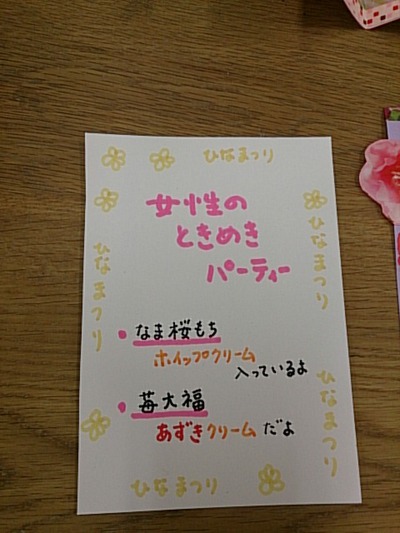 ひなまつり
女性の
ときめき
パーティー
ひなまつり
ひなまつり
・なま桜もち
ホイップクリーム
入っているよ
・苺大福
あずきクリームだよ
ひなまつり
ひなまつり